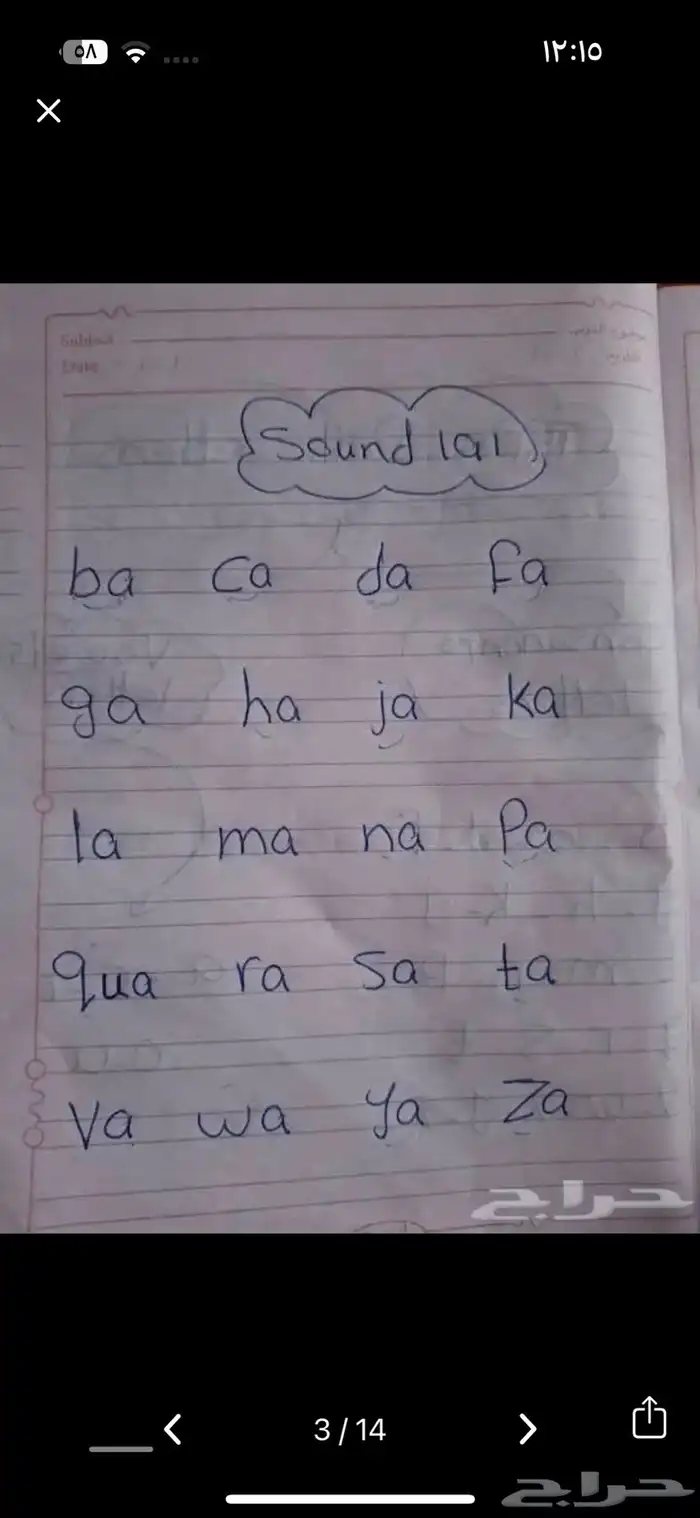 ٥٨ ١٢:١٥
Subject
Date
Sound |a|
ba ca da fa
ga ha ja ka
la ma na Pa
qua ra sa ta
Va wa ya Za
حراج
3 / 14
حراج